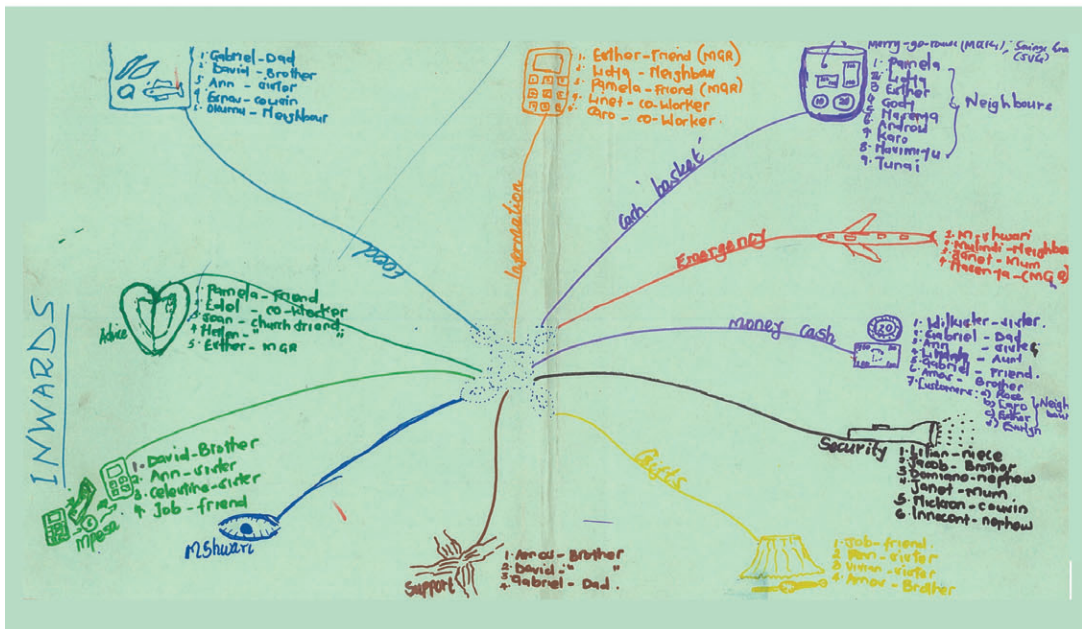 INWARDS
1. Gabriel - Dad
David - Brother
Ann - sister
4. - cousin
5. Okumu - Neighbour
Food
1. Esther - Friend (MGR)
2. Lidya - Neighbour
3. Pamela - Friend (MGR)
4. Linet - co-worker
Caro - co-worker.
Information
Merry-go-round
(SVG)
1. Pamela
2. Lidya
3. Esther
4.
5. Masenya
6. Android
7. Karo
8.
9. Junai
Neighbours
Cash basket
Emergency
1. M-shwari
2. Mulindi -
3. Janet - Mum
4. Masenya - (MGR)
Money cash
20
1. - sister.
2. Gabriel - Dad
3. Ann - sister
4. - Aunt
5. Gabriel - Friend.
6. Amos - Brother
7. Customers: a) Rose
b) Caro
c) Esther
d)
Security
1. Lilian - niece
2. Jacob - Brother
3. Damiano - nephew
4. Janet - Mum
5. - cousin
6. Innocent - nephew
Gifts
1. Job - friend.
2. Ann - sister
3. Vivian - sister
4. Amos - Brother
Support
1. Amos - Brother
2. David - " "
3. Gabriel - Dad.
4.
Mshwari
Mpesa
1. David - Brother
2. Ann - sister
3. Celestine - sister
4. Job - friend
Advice
1. Pamela - Friend
2. - co-worker
3. Joan - church friend
4. Hellen - " "
5. Esther - MGR